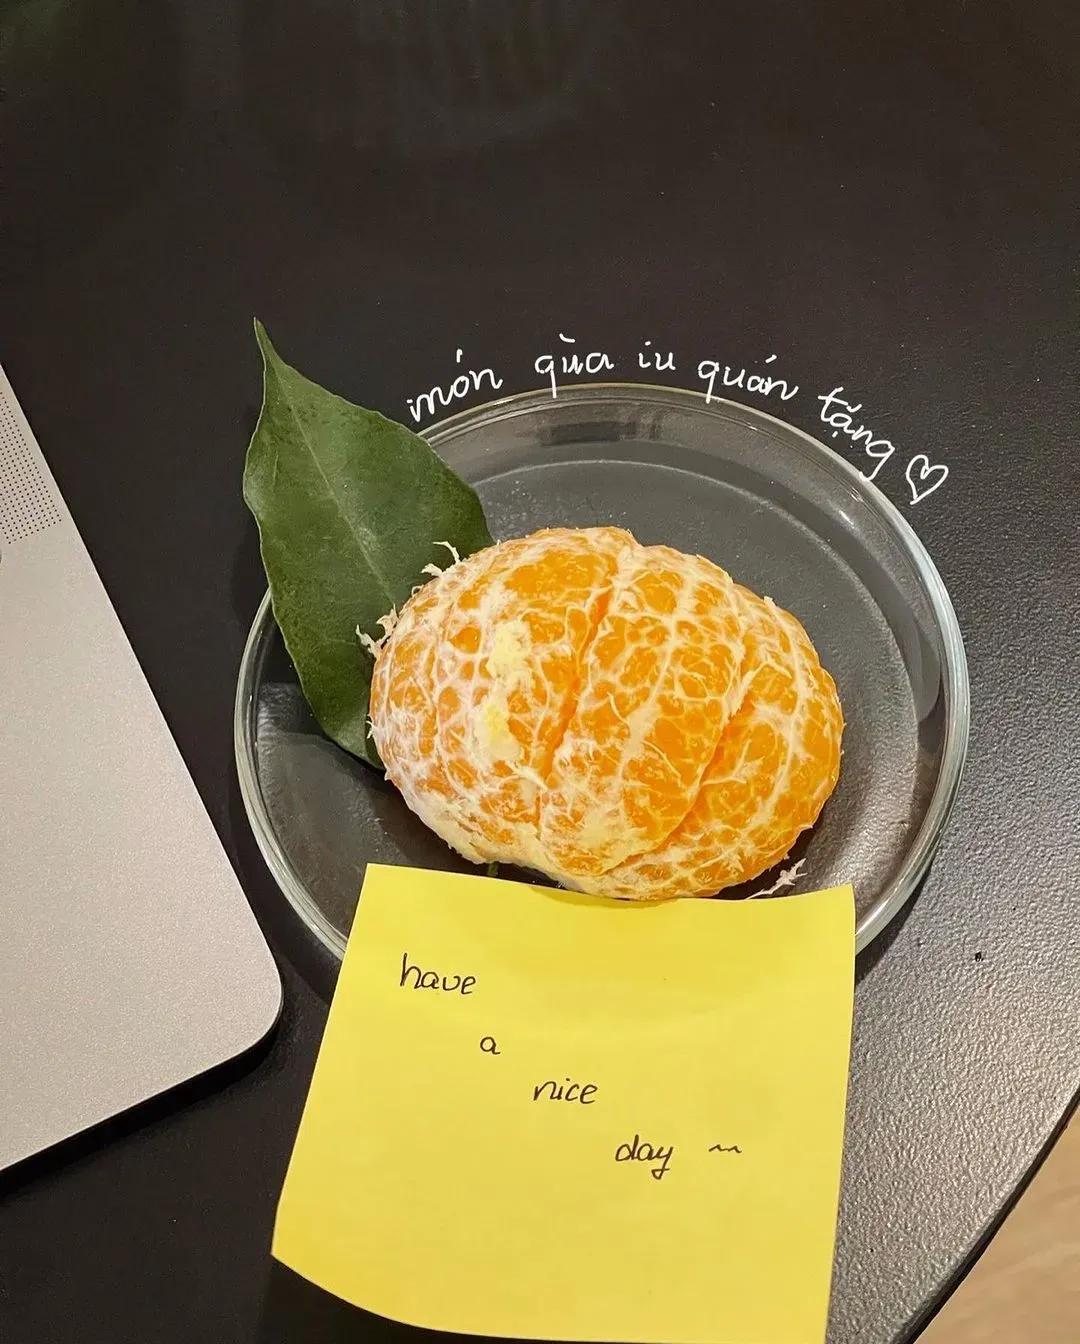 món qùa iu quán tặng ♡
have
a
nice
day ~~